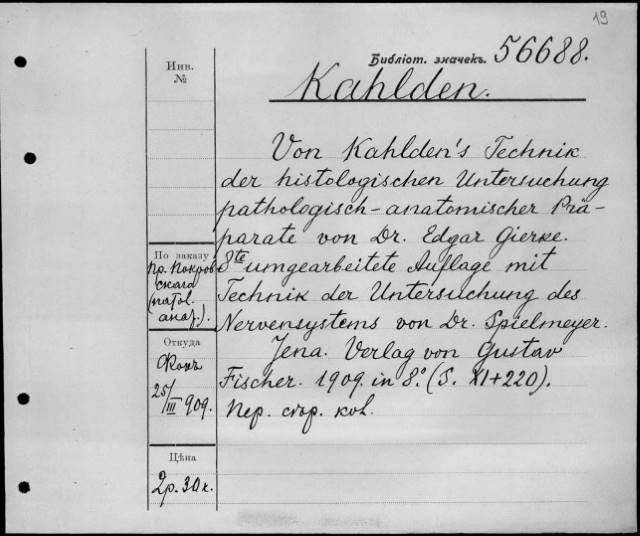 19
Библіот. значекъ. 56688.
Kahlden.
Инв.
№
Von Kahlden's Technik
der histologischen Untersuchung
pathologisch-anatomischer Prä-
parate von Dr. Edgar Gierke.
8te umgearbeitete Auflage mit
Technik der Untersuchung des
Nervensystems von Dr. Spielmeyer.
Jena. Verlag von Gustav
Fischer. 1909. in 8° (S. XI+220).
Пер. стор. кол.
По заказу
Пр. Покров
скаго
(патол.
анат.).
Откуда
25/III 909.
Цѣна
2р. 30к.